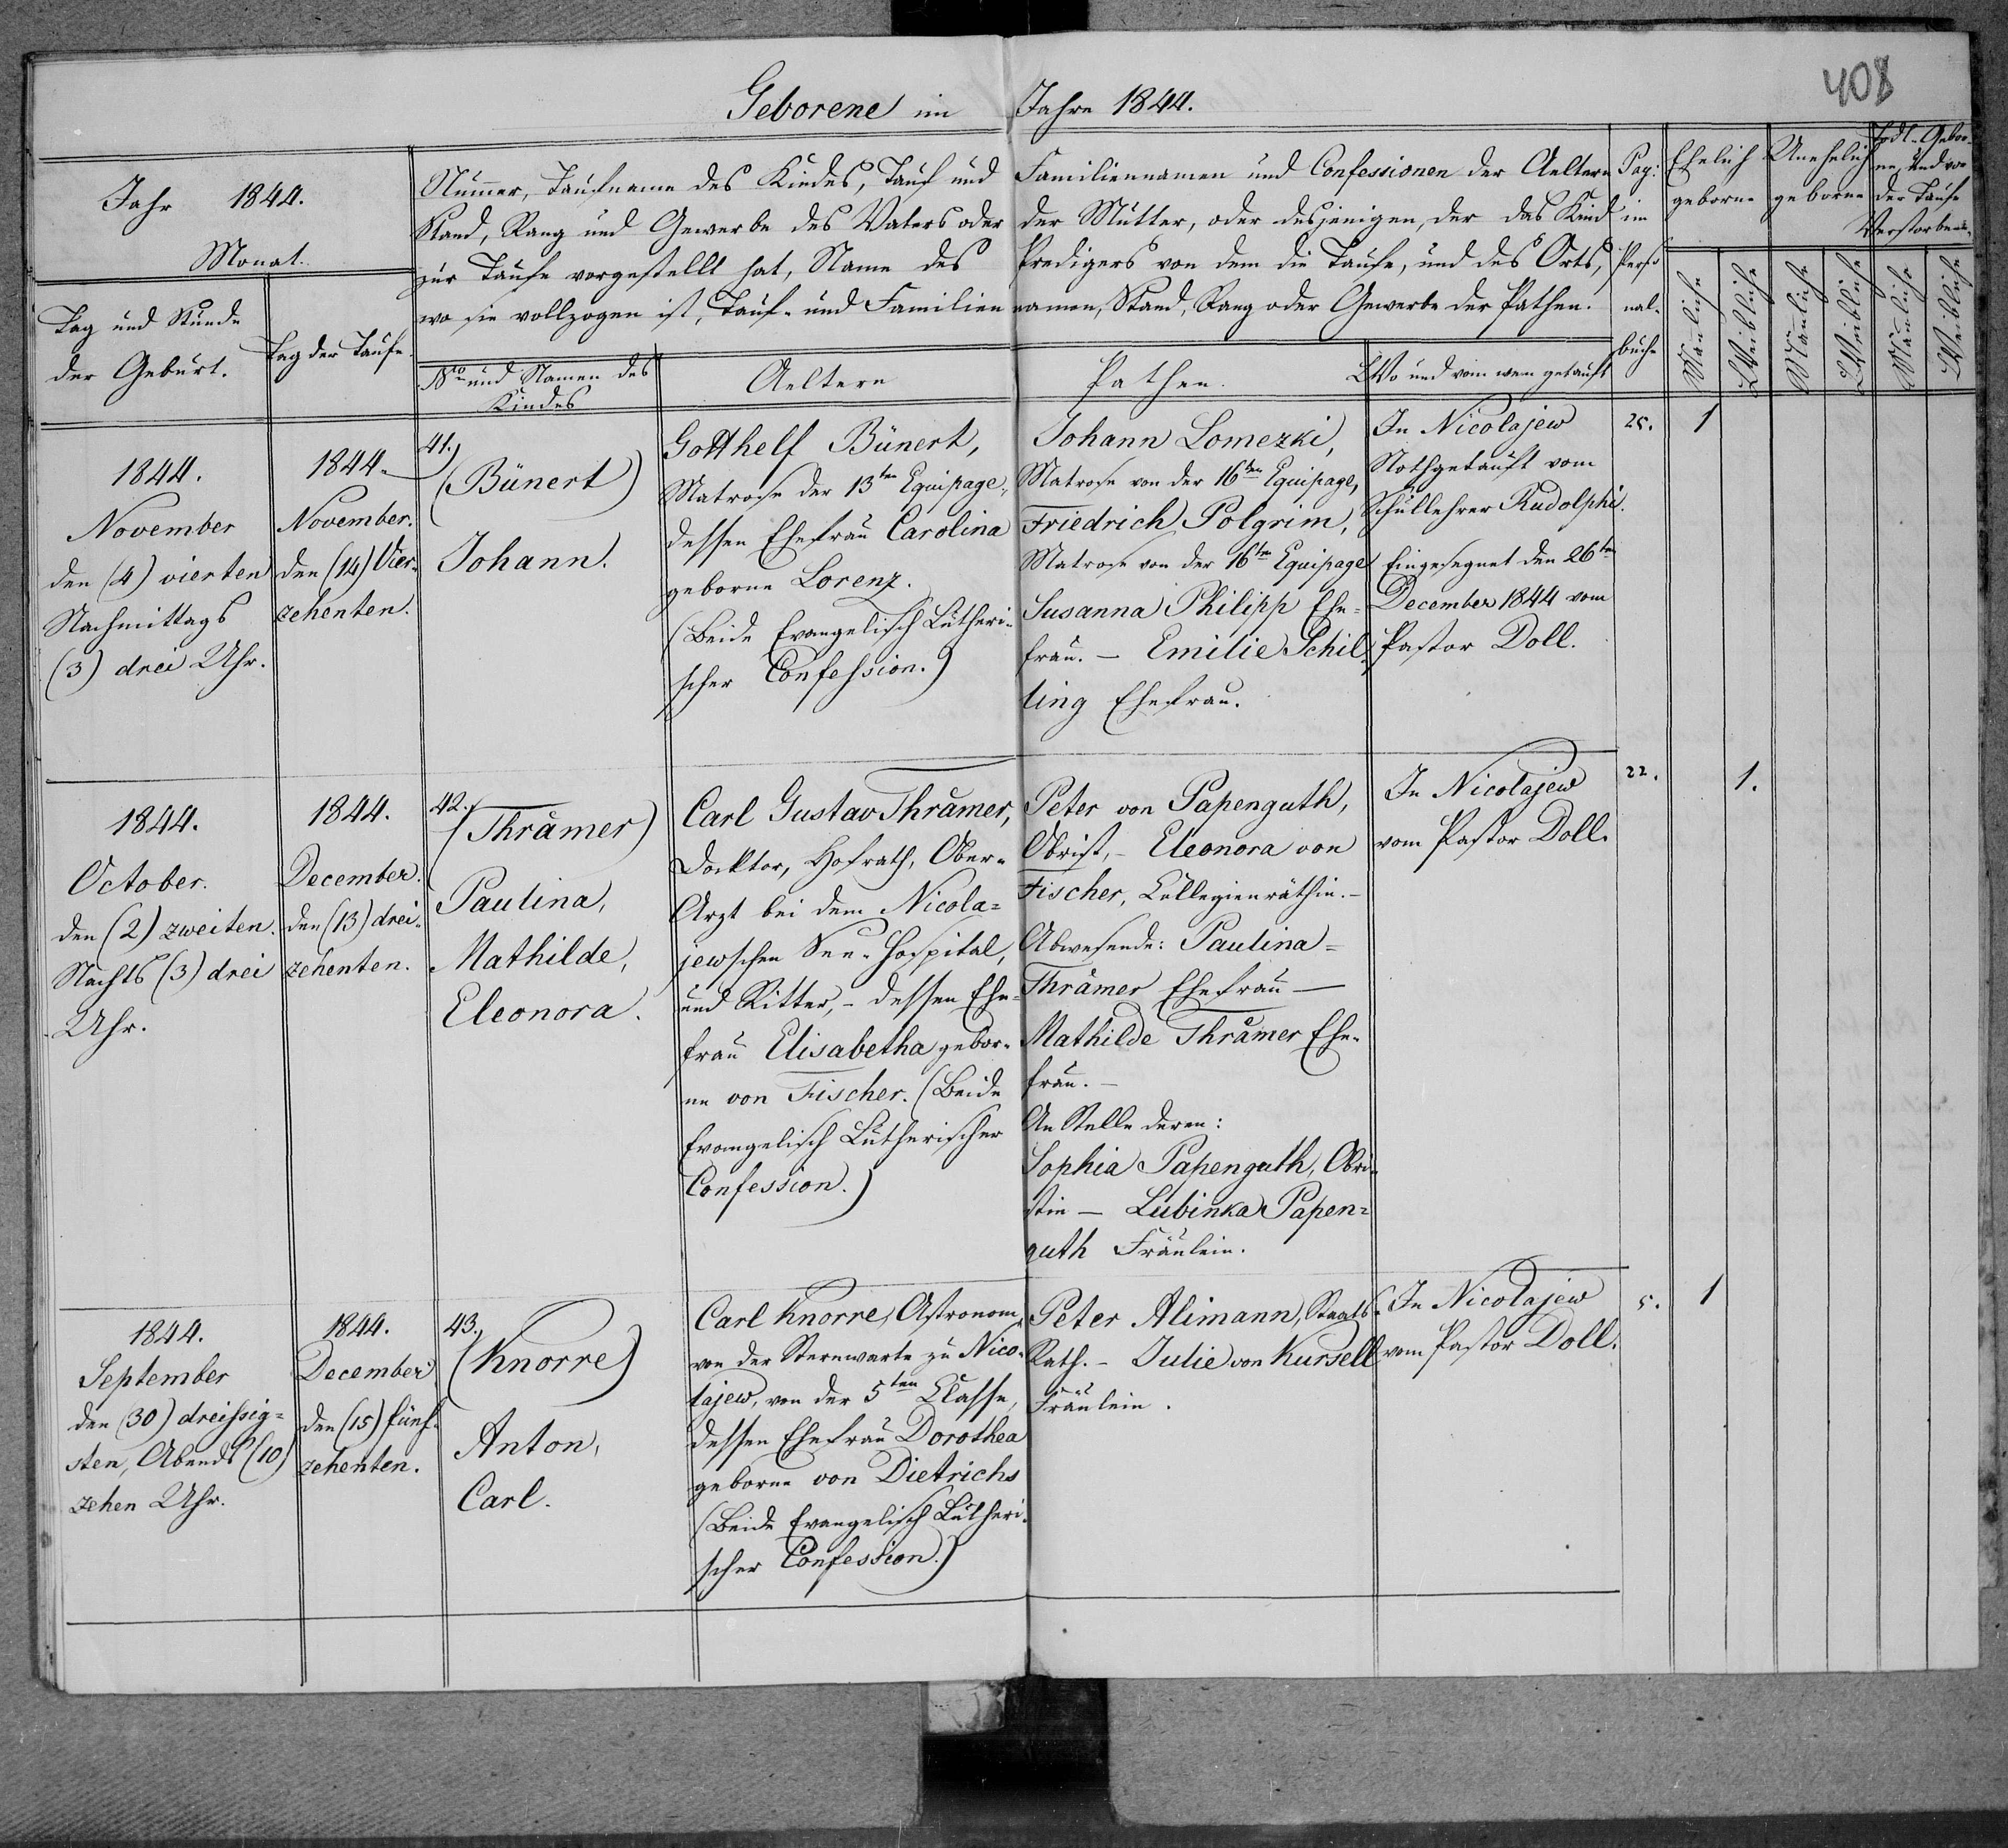 408
Geborene im Jahre 1844.
Jahr 1844.
Monat.
Tag und Stunde
der Geburt.
Tag der Taufe.
Numer, Taufname des Kindes, Tauf und Familiennamen und Confessionen der Aeltern
Stand, Rang und Gewerbe des Vaters oder der Mutter, oder desjenigen, der das Kind
zur Taufe vorgestellt hat, Name des Predigers von dem die Taufe, und des Orts,
wo sie vollzogen ist, Tauf- und Familiennamen, Stand, Rang oder Gewerbe der Pathen.
No und Namen des
Kindes
Aeltern
Pathen.
Wo und vom wem getauft
Pag:
im
Perso
nal-
buch
Ehelich
geborne
Unehelich
geborne
Todt-Gebor-
ne, und vor
der Taufe
Verstorbene.
Mänliche
Weibliche
Mänliche
Weibliche
Mänliche
Weibliche
1844.
November
den (4) vierten
Nachmittags
(3) drei Uhr.
1844.
November.
den (14) Vier-
zehenten.
41.)
(Bünert)
Johann.
Gotthelf Bünert,
Matrose der 13ten Equipage,
dessen Ehefrau Carolina
geborne Lorenz.
(Beide Evangelisch Lutheri-
scher Confession.)
Johann Lomezki,
Matrose von der 16ten Equipage,
Friedrich Polgrim,
Matrose von der 16ten Equipage
Susanna Philipp Ehe-
frau. – Emilie Schil-
ling Ehefrau.
In Nicolajew
Nothgetauft vom
Schullehrer Rudolphi.
Eingesegnet den 26ten
December 1844 vom
Pastor Doll.
25.
1
1844.
October.
den (2) zweiten.
Nachts (3) drei
Uhr.
1844.
December.
den (13) drei-
zehenten.
42.
(Thrämer)
Paulina,
Mathilde,
Eleonora.
Carl Gustav Thrämer,
Docktor, Hofrath, Ober-
Arzt bei dem Nicola=
jewschen See-Hospital,
und Ritter, – dessen Ehe-
frau Elisabetha gebor-
ne von Fischer. (Beide
Evangelisch Lutherischer
Confession.)
Peter von Papenguth,
Obrist, – Eleonora von
Fischer, Collegienräthin. –
Abwesende: Paulina =
Thrämer Ehefrau –
Mathilde Thrämer Ehe-
frau. –
An Stelle deren:
Sophia Papenguth, Obri-
stin – Lubinka Papen=
guth Fräulein.
In Nicolajew
vom Pastor Doll.
22.
1.
1844.
September
den (30) dreissig=
sten, Abends (10)
zehen Uhr.
1844.
December
den (15) fünf-
zehenten.
43.,
(Knorre)
Anton,
Carl.
Carl Knorre, Astronom
von der Sternwarte zu Nico-
lajew, von der 5ten Classe,
dessen Ehefrau Dorothea
geborne von Dietrichs
(Beide Evangelisch Lutheri-
scher Confession.)
Peter Alimann, Staats-
Rath. – Julie von Kursell
Fräulein.
In Nicolajew
vom Pastor Doll.
5.
1